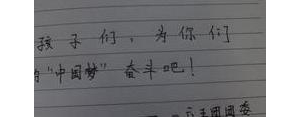 孩子们，为你们
的“中国梦”奋斗吧！
团委